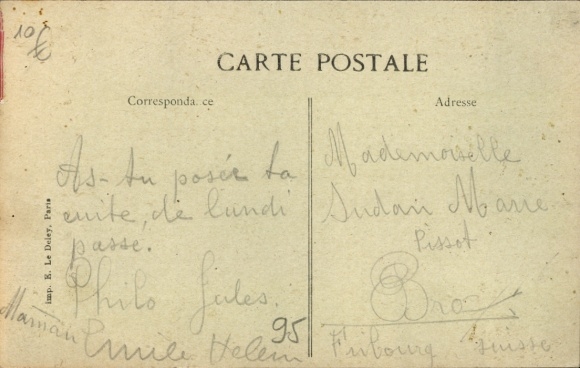 10
CARTE POSTALE
Corresponda ce
Adresse
As-tu posée ta
cuite, de lundi
passe.
Philo Jules.
Maman
Emile Helein
95
Mademoiselle
Sudan Marie
Pissot
Broc
Fribourg suisse
Imp. E. Le Deley, Paris